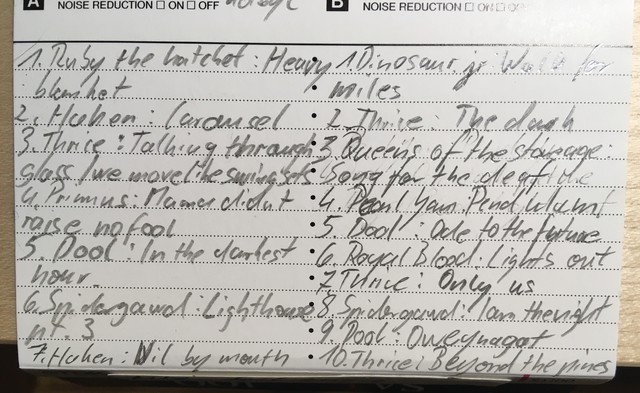 A NOISE REDUCTION ☐ ON ☐ OFF
B NOISE REDUCTION ☐ ON ☐
1. Ruby the hatchet: Heavy
blanket
2. Haken: Carousel
3. Thrice: Talking through
glass/we move like swing sets
4. Primus: Mama didnt
raise no fool
5. Dool: In the darkest
hour
6. Spidergawd: Lighthouse
pt. 3
7. Haken: Nil by mouth
1. Dinosaur jr: Walk for
miles
2. Thrice: The dark
3. Queens of the stoneage:
Song for the deaf
4. Pearl Jam:
5. Dool: Ode to the future
6. Royal Blood: Lights out
7. Thrice: Only us
8. Spidergawd: I am the night
9. Dool: Oweynagat
10. Thrice: Beyond the pines